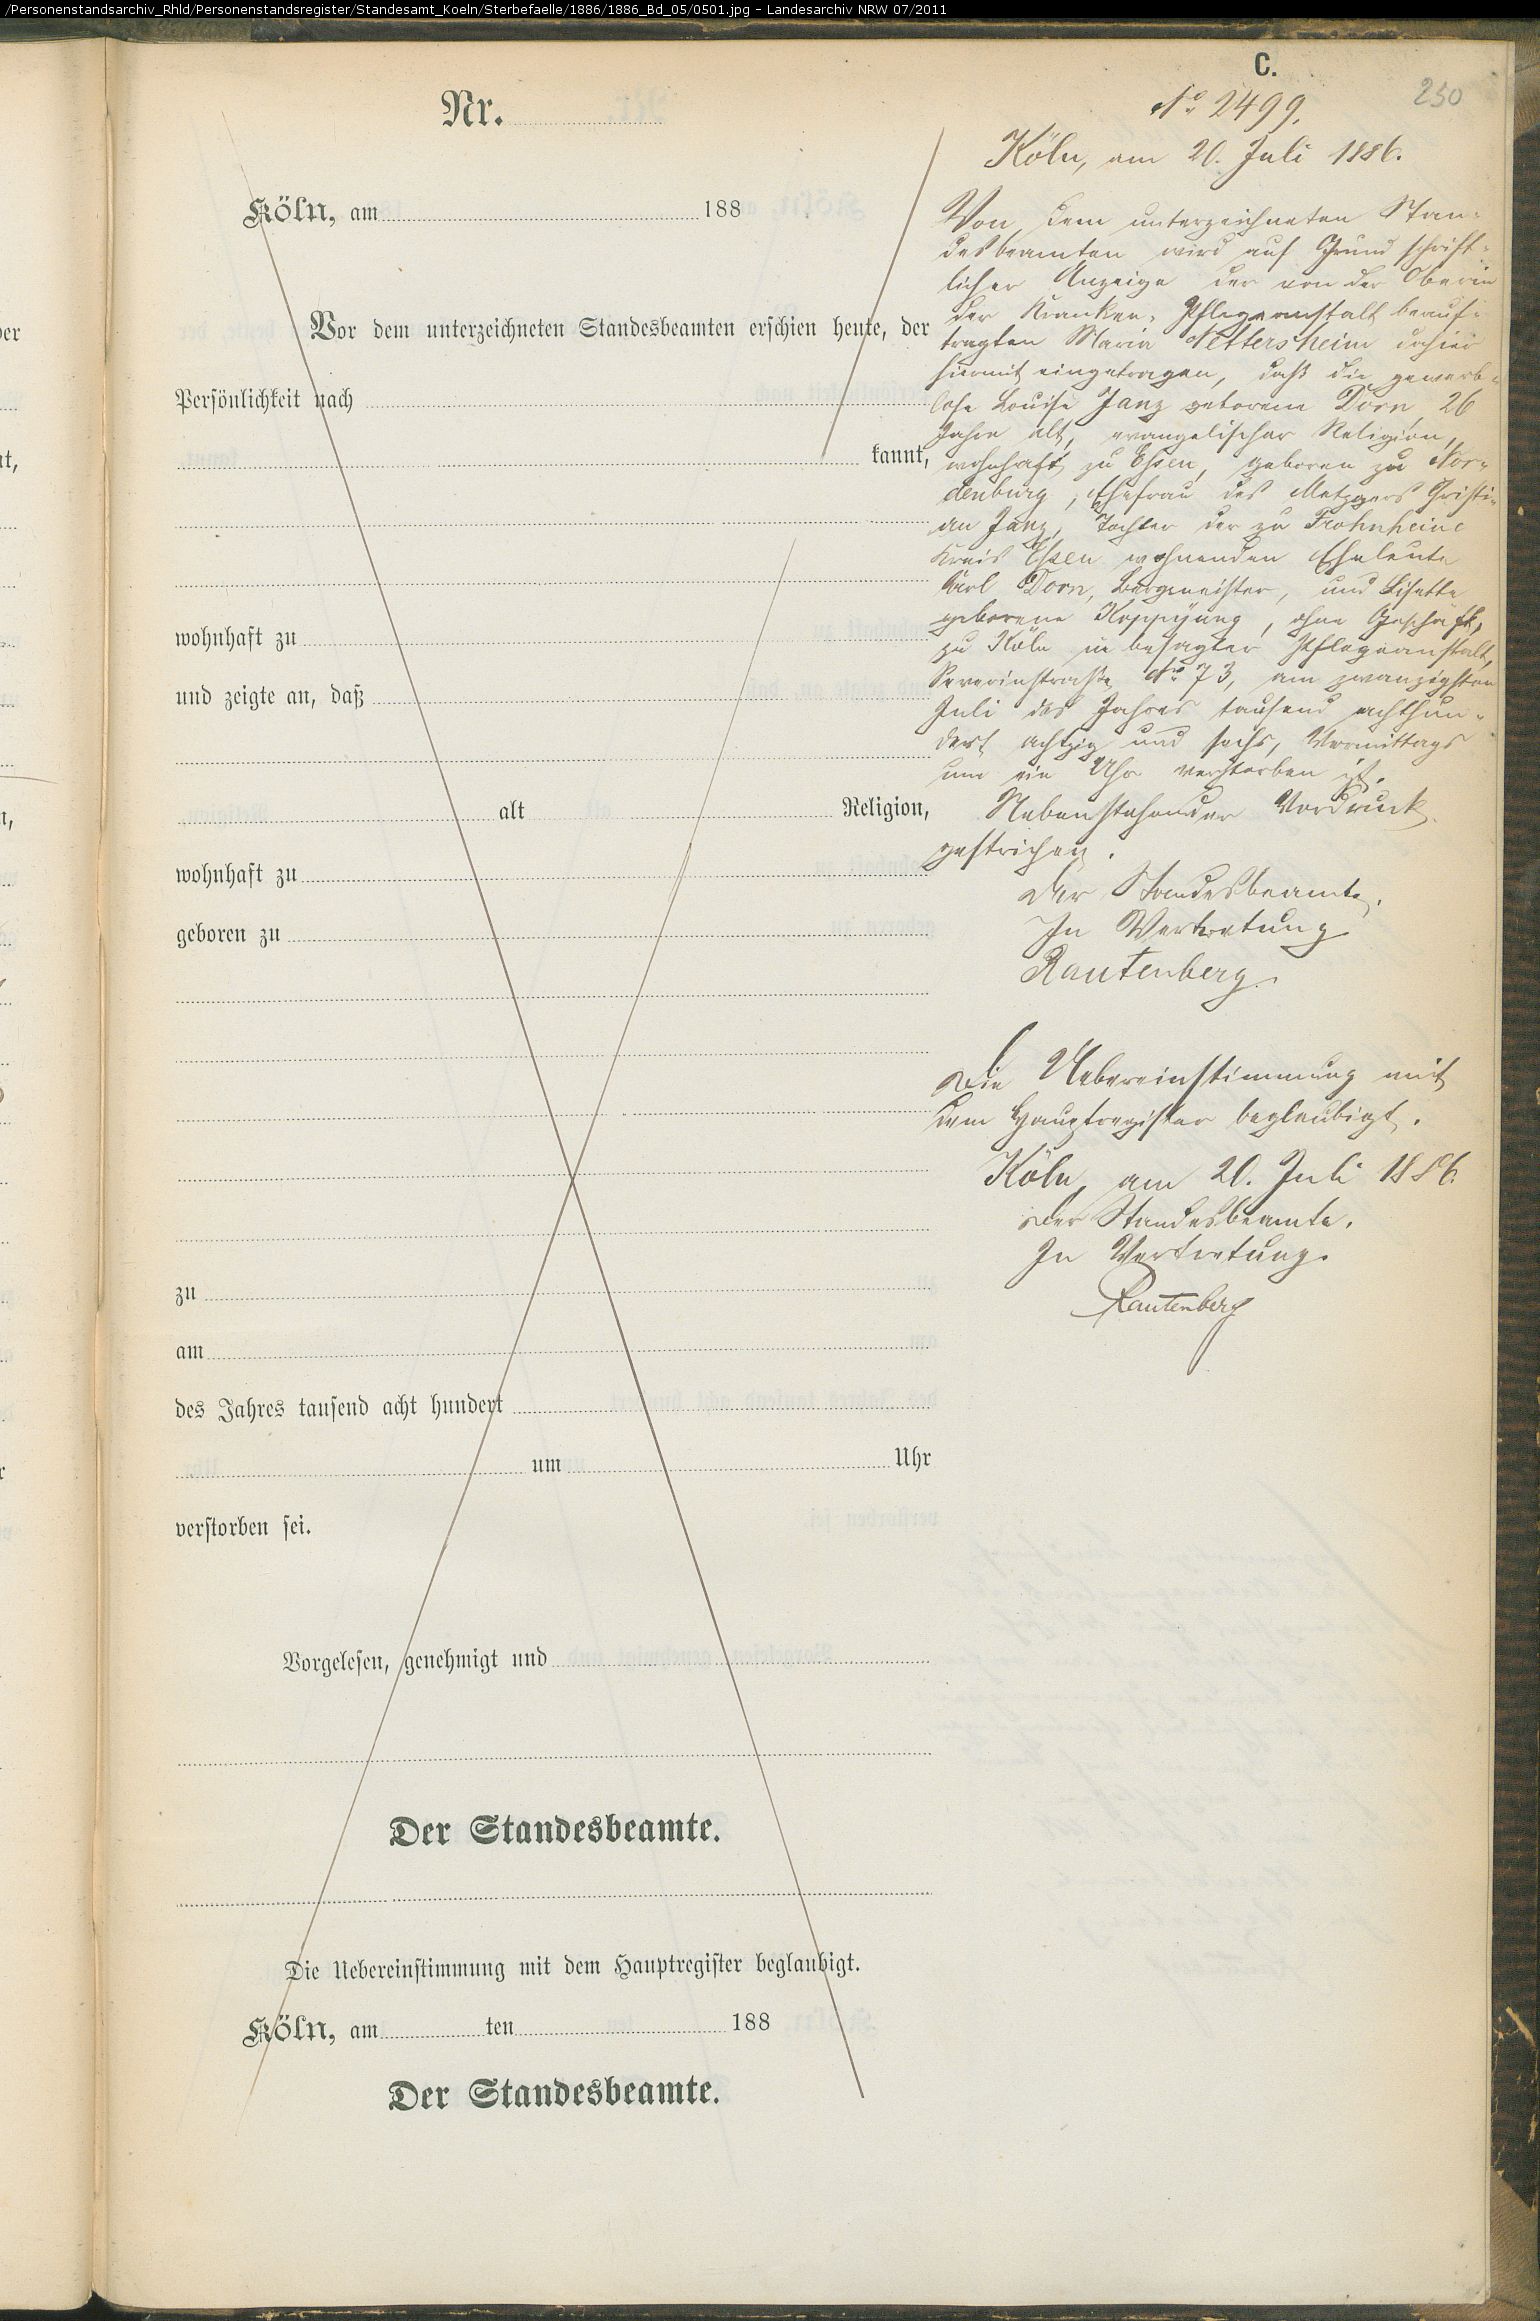 /Personenstandsarchiv_Rhld/Personenstandsregister/Standesamt_Koeln/Sterbefaelle/1886/1886_Bd_05/0501.jpg - Landesarchiv NRW 07/2011
C.
250
Nr.
Köln, am 188
Vor dem unterzeichneten Standesbeamten erschien heute, der
Persönlichkeit nach
kannt,
wohnhaft zu
und zeigte an, daß
alt Religion,
wohnhaft zu
geboren zu
zu
am
des Jahres tausend acht hundert
um Uhr
verstorben sei.
Vorgelesen, genehmigt und
Der Standesbeamte.
Die Uebereinstimmung mit dem Hauptregister beglaubigt.
Köln, am ten 188
Der Standesbeamte.
No 2499.
Köln, am 20. Juli 1886.
Von dem unterzeichneten Stan-
desbeamten wird auf Grund schrift-
licher Anzeige der von der Oberin
der Kranken-Pflegeanstalt beauf-
tragten Maria Nettersheim dahier
hiermit eingetragen, daß die gewerb-
lose Louise Janz geborene Dorn, 26
Jahre alt, evangelischer Religion,
wohnhaft zu Essen, geboren zu Nor-
denburg, Ehefrau des Metzgers Christi-
an Janz, Tochter der zu
Kreis Essen wohnenden Eheleute
Carl Dorn, Bergmeister, und Lisette
geborene, ohne Geschäft,
zu Köln in besagter Pflegeanstalt,
Severinstraße No 73, am zwanzigsten
Juli des Jahres tausend achthun-
dert achtzig und sechs, Vormittags
um ein Uhr verstorben ist.
Nebenstehender Vordruck
gestrichen.
Der Standesbeamte.
In Vertretung
Rautenberg
Die Uebereinstimmung mit
dem Hauptregister beglaubigt.
Köln, am 20. Juli 1886.
Der Standesbeamte.
In Vertretung.
Rautenberg